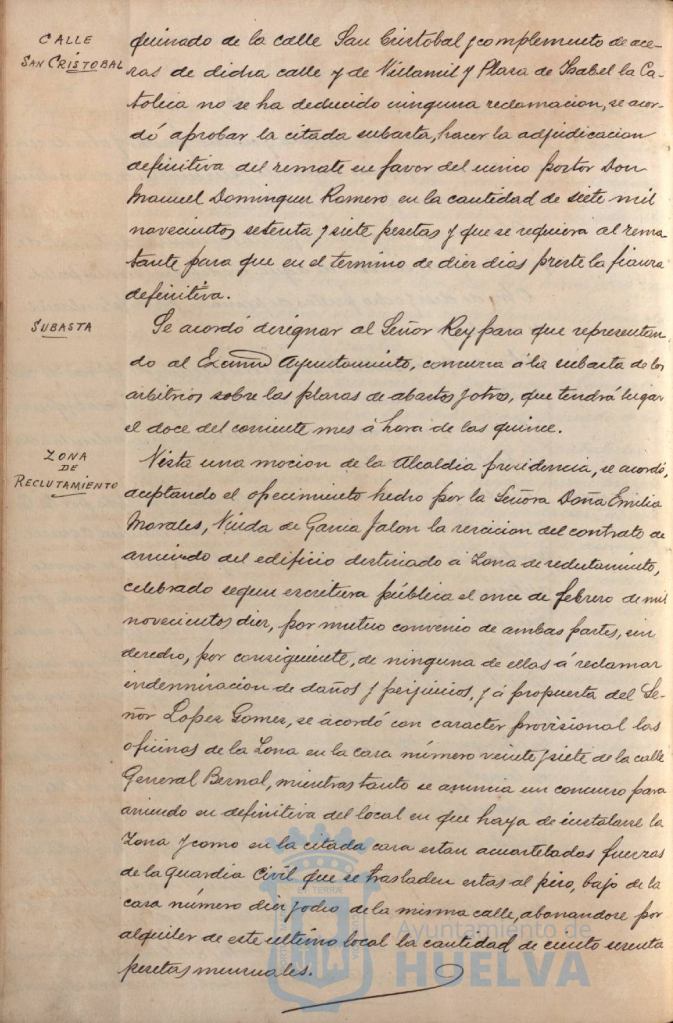 CALLE
SAN CRISTOBAL
quinado de la calle San Cristobal y complemento de ace-
ras de dicha calle y de Villamil y Plaza de Isabel la Ca-
tolica no se ha deducido ninguna reclamacion, se acor-
dó aprobar la citada subasta, hacer la adjudicacion
definitiva del remate en favor del unico postor Don
Manuel Dominguez Romero en la cantidad de siete mil
novecientas setenta y siete pesetas y que se requiera al rema
tante para que en el termino de diez dias preste la fianza
definitiva.
SUBASTA
Se acordó designar al Señor Rey para que representan-
do al Excmo Ayuntamiento, concurra á la subasta de los
arbitrios sobre las plazas de abastos y otros, que tendrá lugar
el doce del corriente mes á hora de las quince.
ZONA
DE
RECLUTAMIENTO
Vista una mocion de la Alcaldia presidencia, se acordó,
aceptando el ofrecimiento hecho por la Señora Doña Emilia
Morales, Viuda de Garcia Jalon la rescicion del contrato de
arriendo del edificio destinado á Zona de reclutamiento,
celebrado segun escritura pública el once de febrero de mil
novecientos diez, por mutuo convenio de ambas partes, sin
derecho, por consiguiente, de ninguna de ellas á reclamar
indemnizacion de daños y perjuicios, y á propuesta del Se-
ñor Lopez Gomez, se acordó con caracter provisional las
oficinas de la Zona en la casa número veinte y siete de la calle
General Bernal, mientras tanto se anuncia un concurso para
arriendo en definitiva del local en que haya de instalarse la
Zona y como en la citada casa estan acuarteladas fuerzas
de la guardia Civil que se trasladen estas al piso, bajo de la
casa número diez y ocho de la misma calle, abonandose por
alquiler de este ultimo local la cantidad de ciento sesenta
pesetas mensuales.
Ayuntamiento de
HUELVA